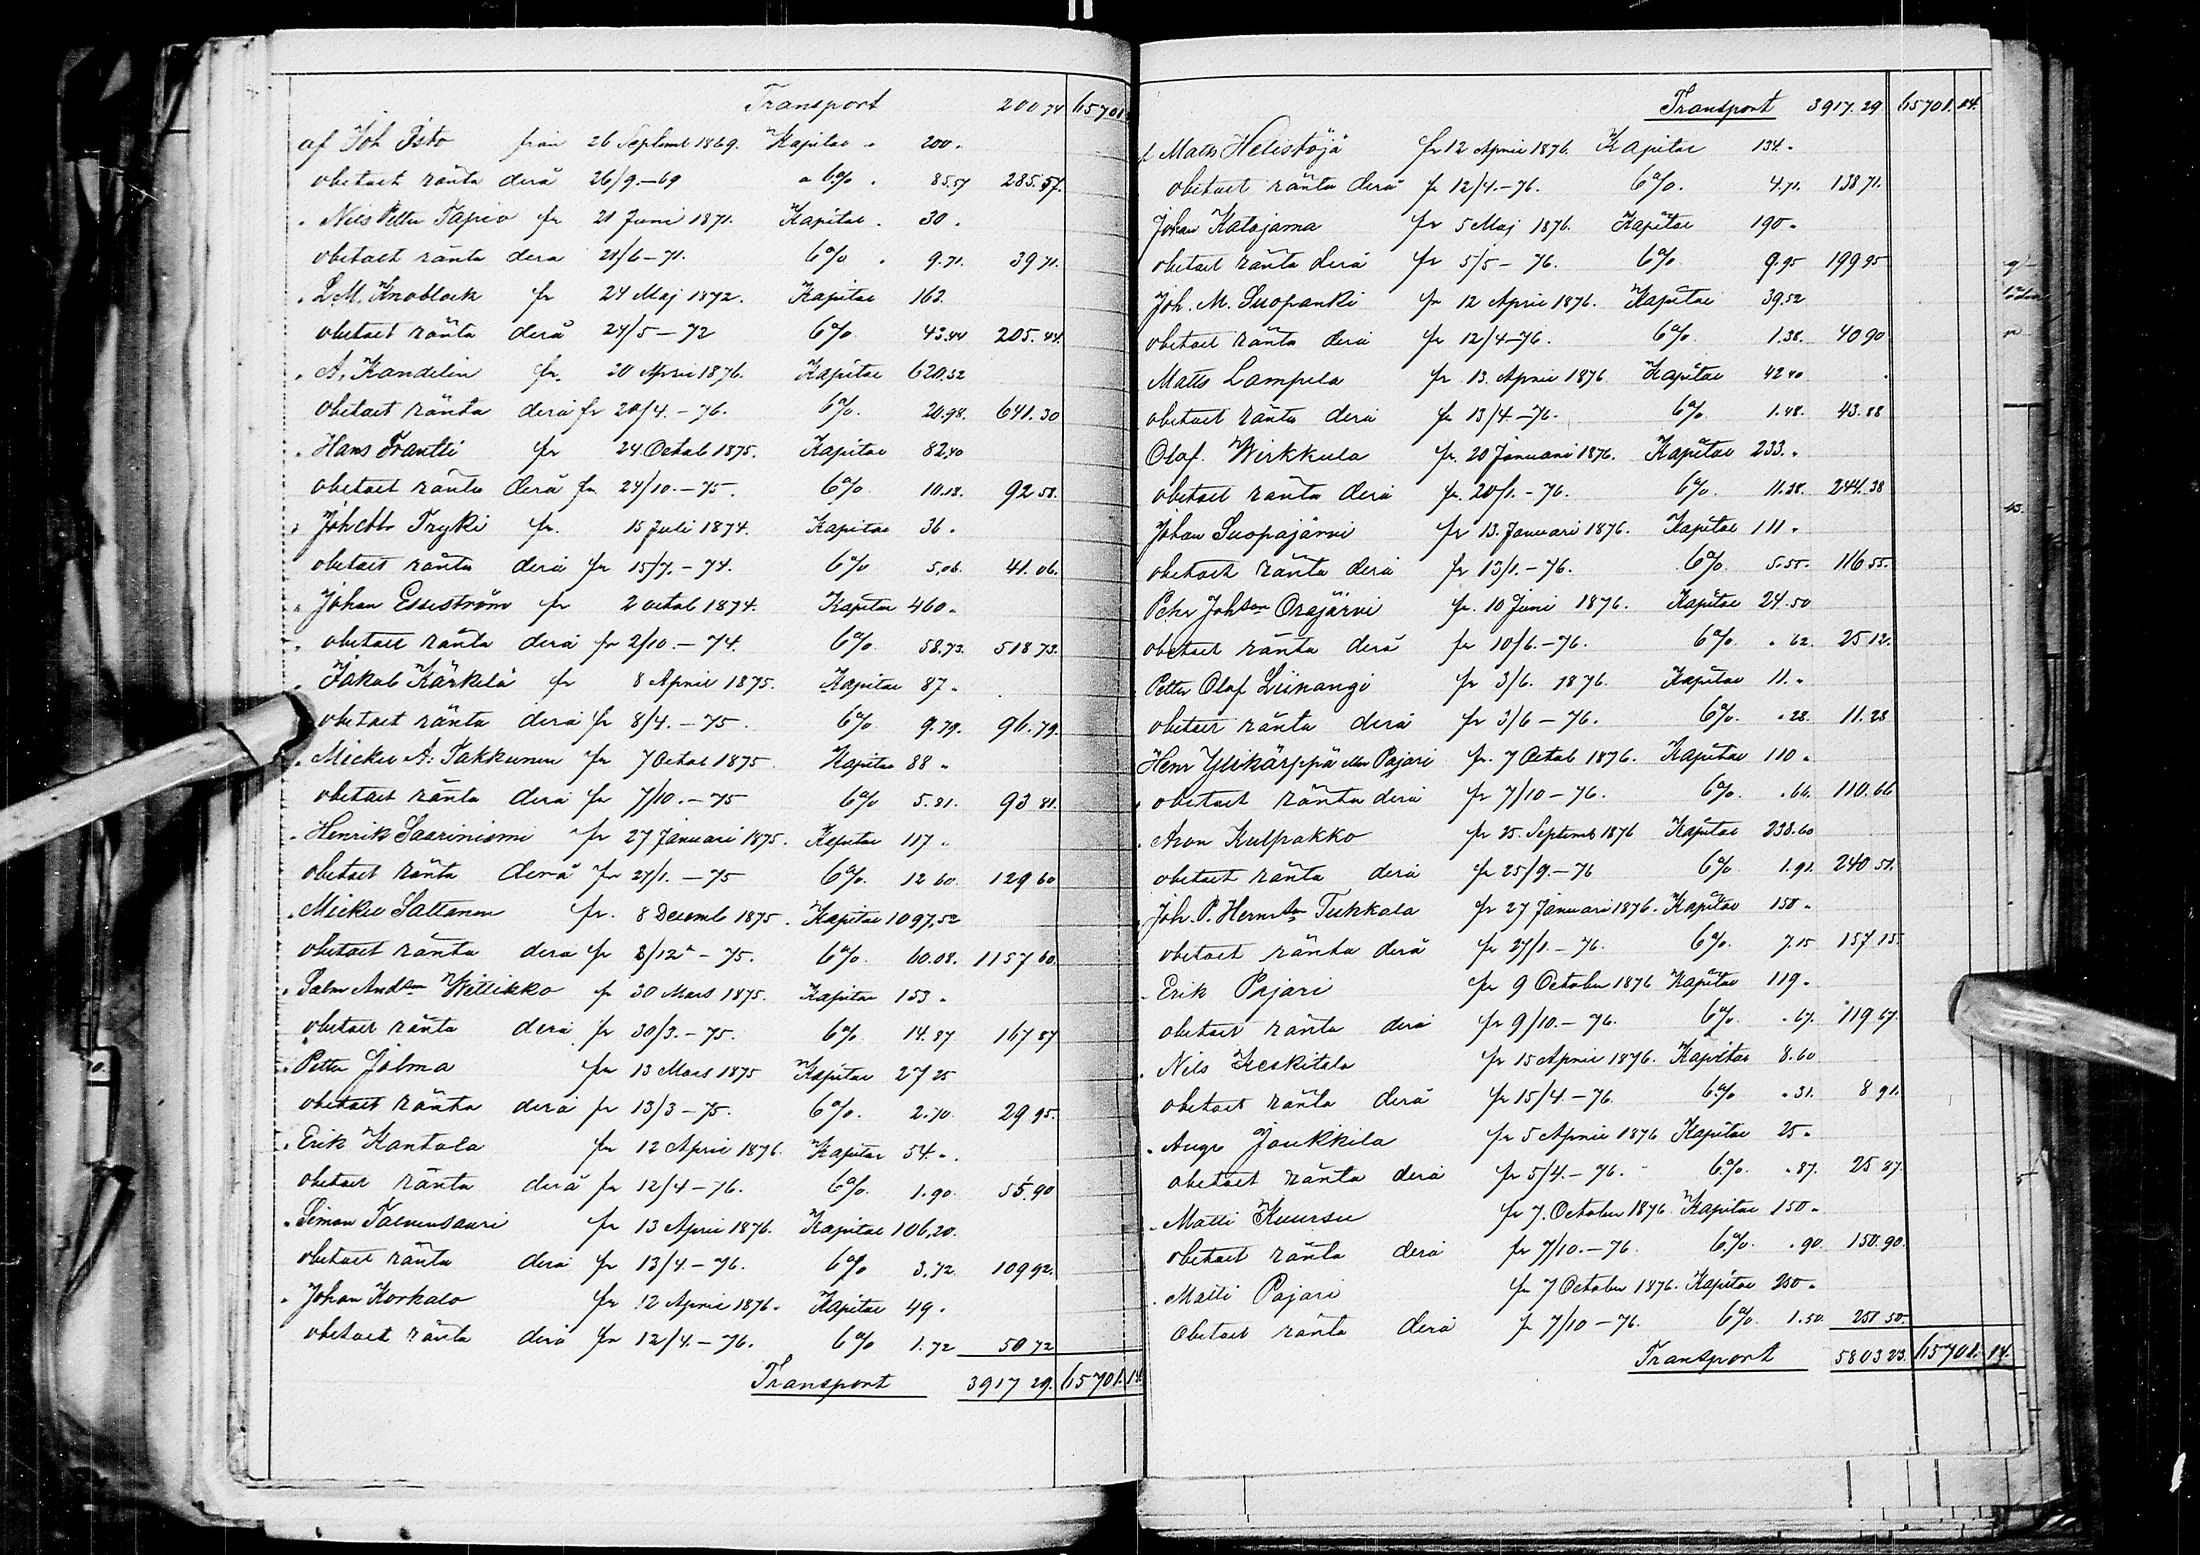 Transport 200 74 65701
af Joh Isto från 26 Septemb 1869. Kapital . 200.
obetalt ränta derå 26/9.-69 a 6% . 85.57 285.57.
. Nils Petter Tapio fr 21 Juni 1871. Kapital . 30 .
obetalt ränta derå 21/6-71. 6% . 9.71. 39 71.
. L. M. Knoblock fr 24 Maj 1872. Kapital 162.
obetalt ränta derå 24/5-72 6% 43.44 205.44.
. A. Kandelin fr. 20 April 1876. Kapital 620,32
obetalt ränta derå fr 20/4.-76. 6%. 20.98. 641.30
. Hans Frantti fr 24 Octob 1875. Kapital 82.40
obetalt ränta derå fr 24/10.-75. 6% 10.18. 92 58.
. Fryki fr. 15 Juli 1874. Kapital 36 .
obetalt ränta derå fr 15/7.-74. 6% 5.06. 41.06.
. Johan Esseström fr 2 octob 1874. Kapital 460.
. obetalt ränta derå fr 2/10.-74. 6% 58.73. 518 73.
. Jakob Kärkelä fr 8 April 1875. Kapital 87.
obetalt ränta derå fr 8/4.-75. 6% 9.79. 96.79.
. Mickel A. Takkunen fr 7 Octob 1875. Kapital 88 .
obetalt ränta derå fr 7/10.-75 6% 5.81. 93 81.
. Henrik Saariniemi fr 27 Januari 1875. Kapital 117 .
obetalt ränta derå fr 27/1.-75 6%. 12 60. 129 60
. Mickel Sattanen fr. 8 Decemb 1875. Kapital 1097,52
obetalt ränta derå fr 8/12.-75. 6%. 60.08. 1157 60.
. Salm Andson Willikko fr 30 Mars 1875. Kapital 153 .
obetalt ränta derå fr 30/3.-75. 6% 14.87 167 87
. Petter Jolma fr 13 Mars 1875 Kapital 27 25
obetalt ränta derå fr 13/3-75. 6%. 2.70. 29 95.
. Erik Kantola fr 12 April 1876. Kapital 54..
obetalt ränta derå fr 12/4-76. 6%. 1.90. 55.90
. Simon Talvensaari fr 13 April 1876. Kapital 106,20.
obetalt ränta derå fr 13/4.-76. 6% 3.72. 109 92.
. Johan Korkalo fr 12 April 1876. Kapital 49.
obetalt ränta derå fr 12/4.-76. 6% 1.72 50 72
Transport 3917 29. 65701.14.
Transport 3917.29 65701.14.
Matts Helistöjä fr 12 April 1876. Kapital 134.
obetalt ränta derå fr 12/4-76. 6%. 4.71. 138 71.
Johan Katajama fr 5 Maj 1876. Kapital 190.
obetalt ränta derå fr 5/5-76. 6% 9.95 199 95
Joh. M. Suopanki fr 12 April 1876. Kapital 39,52
obetalt ränta derå fr 12/4-76. 6%. 1.38. 40 90
Matts Lampela fr 13. April 1876 Kapital 42 40
obetalt ränta derå fr 13/4-76. 6% 1.48. 43.88
Olof. Wirkkula fr. 20 Januari 1876. Kapital 233..
obetalt ränta derå fr. 20/1.-76. 6%. 11.38. 244.38
Johan Suopajärvi fr 13. Januari 1876. Kapital 111.
obetalt ränta derå fr 13/1.-76. 6% 5.55. 116 55.
Petr Johson Orajärvi fr. 10 Juni 1876. Kapital 24.50
obetalt ränta derå fr 10/6.-76. 6%. .62. 25 12.
Petter Olof Liinangi fr 3/6. 1876. Kapital 11..
obetalt ränta derå fr 3/6-76. 6%. .28. 11.28
Henr Ylikärppä eller Pajari fr. 7 Octob 1876. Kapital 110.
. obetalt ränta derå fr 7/10-76. 6%. .66. 110.66
. Aron Kulpakko fr 25. Septemb 1876 Kapital 238.60
obetalt ränta derå fr 25/9.-76 6% 1.91. 240 51.
. Joh. P. Hermson Tukkala fr 27 Januari 1876. Kapital 150.
obetalt ränta derå fr 27/1.-76. 6%. 7.15 157 15.
. Erik Pajari fr 9 October 1876 Kapital 119.
obetalt ränta derå fr 9/10.-76. 6%. .67. 119 67.
. Nils Keskitalo fr 15 April 1876. Kapital 8.60
obetalt ränta derå fr 15/4.-76. 6.% .31. 8 91.
. Aug Joukkila fr 5 April 1876 Kapital 25.
obetalt ränta derå fr 5/4.-76. 6%. .87. 25 87.
. Matti Kuursu fr 7. October 1876 Kapital 150.
obetalt ränta derå fr 7/10.-76. 6%. .90. 150.90.
. Matti Pajari fr 7 October 1876. Kapital 250.
Obetalt ränta derå fr 7/10-76. 6% 1.50 251 50.
Transport 5803 23. 65701.14.